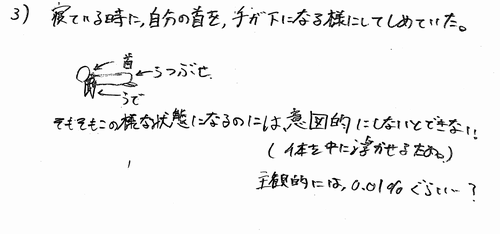 3) 寝ている時に,自分の首を,手が下になる様にしてしめていた。
首
うつぶせ
うで
そもそもこの様な状態になるのには,意図的にしないとできない
(体を中に浮かせるため。)
主観的には,0.01%ぐらい…?